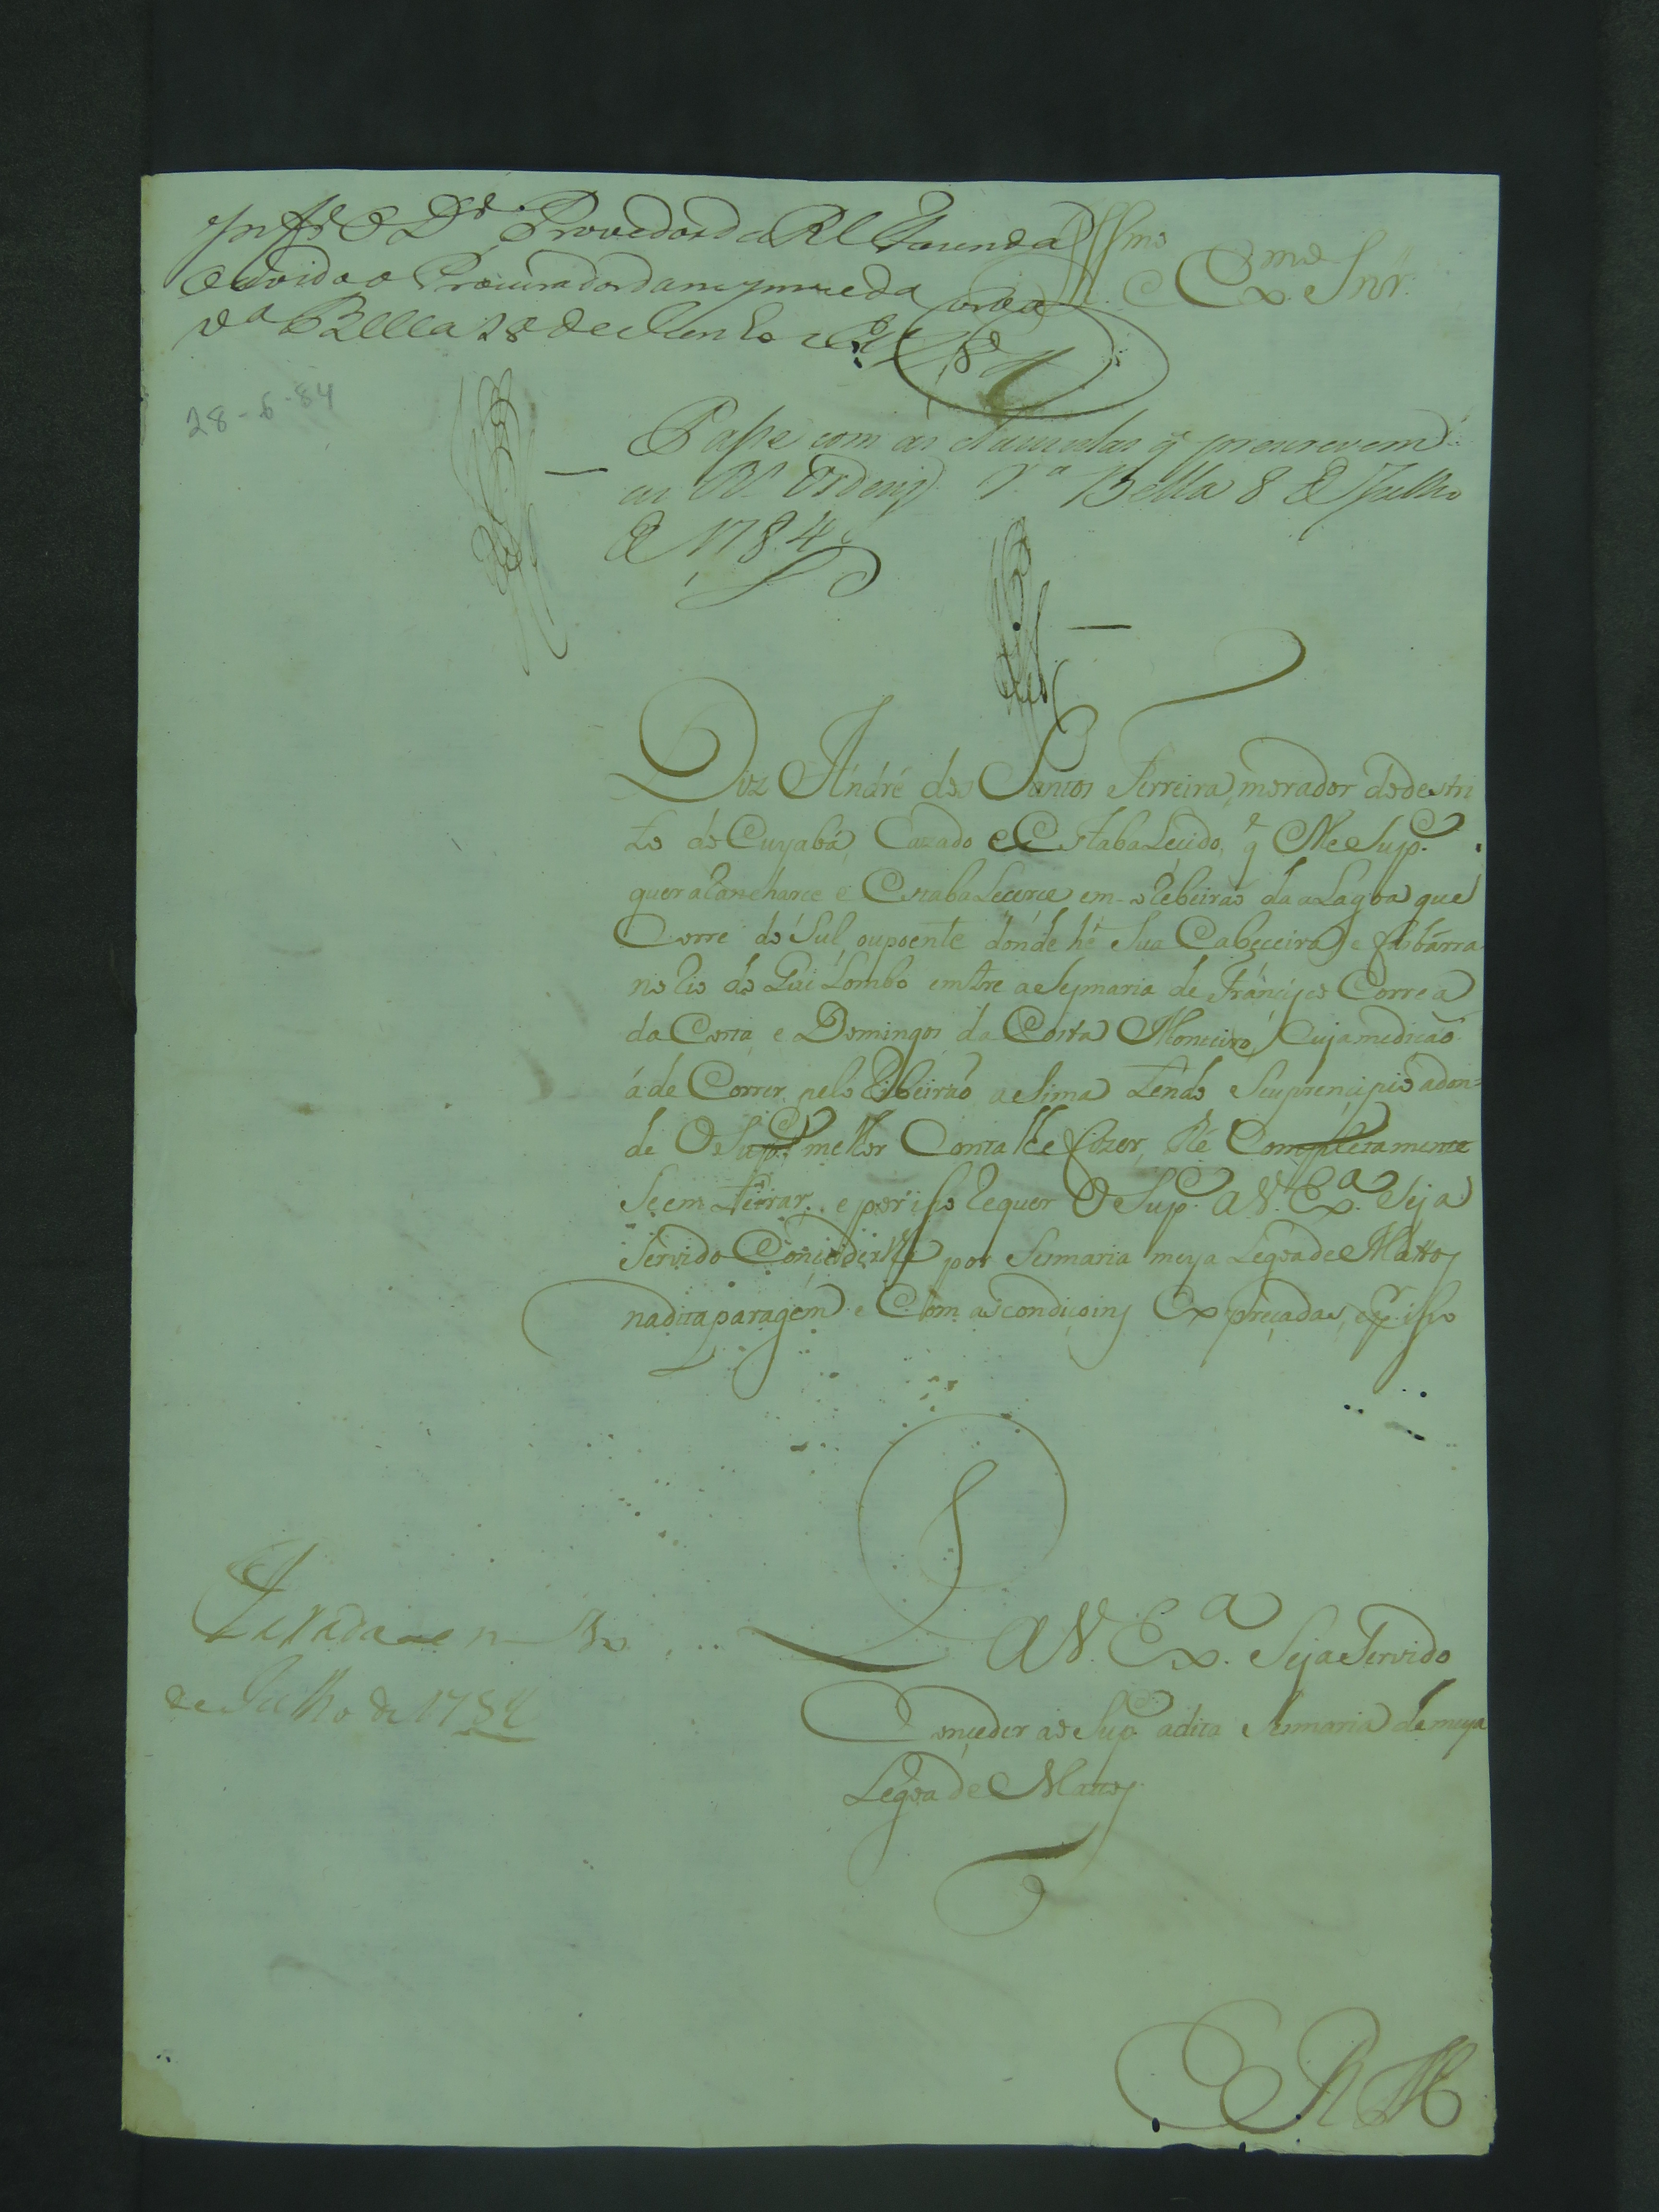 Informe o Dr. Provedor da Rl Fazenda
ouvido o Procurador da mesma e da Coroa
Va Bella 28 de Junho de 1784
Illmo
e Exmo Snr.
28-6-84
Passe com as clauzulas q̃ prescrevem
as Rs Ordens. Va Bella 8 de Julho
de 1784
Diz André dos Santos Ferreira, morador do destri
to de Cuyabá, Cazado e Estabalecido, q̃ elle Supe.
quer aRancharce e Estabalecerce em o Rebeirão da aLagoa que
Corre do Sul, oupoente donde hé Sua Cabeceira e faz bárra
no Rio do Quilombo emtre a Sesmaria de Francisco Correa
da Costa e Domingos da Costa Monteiro, Cuja medicaõ
á de Correr pelo Ribeirão aSima tendo Seu prencipio adon=
de O Supe melhor Conta lhe fizer, the Completamente
Se em teirar. e por iso Requer O Supe. a V. Exa. Seja
Servido Concederlhe por Sesmaria meya Legoa de Mattos
na dita paragem e Com as condiçoins Expreçadas, e pr. iso
P.
a V. Exa. Seja Servido
Conçeder ao Supe. a dita Sesmaria de meya
Legoa de Mattos
de Julho de 1784
E R M